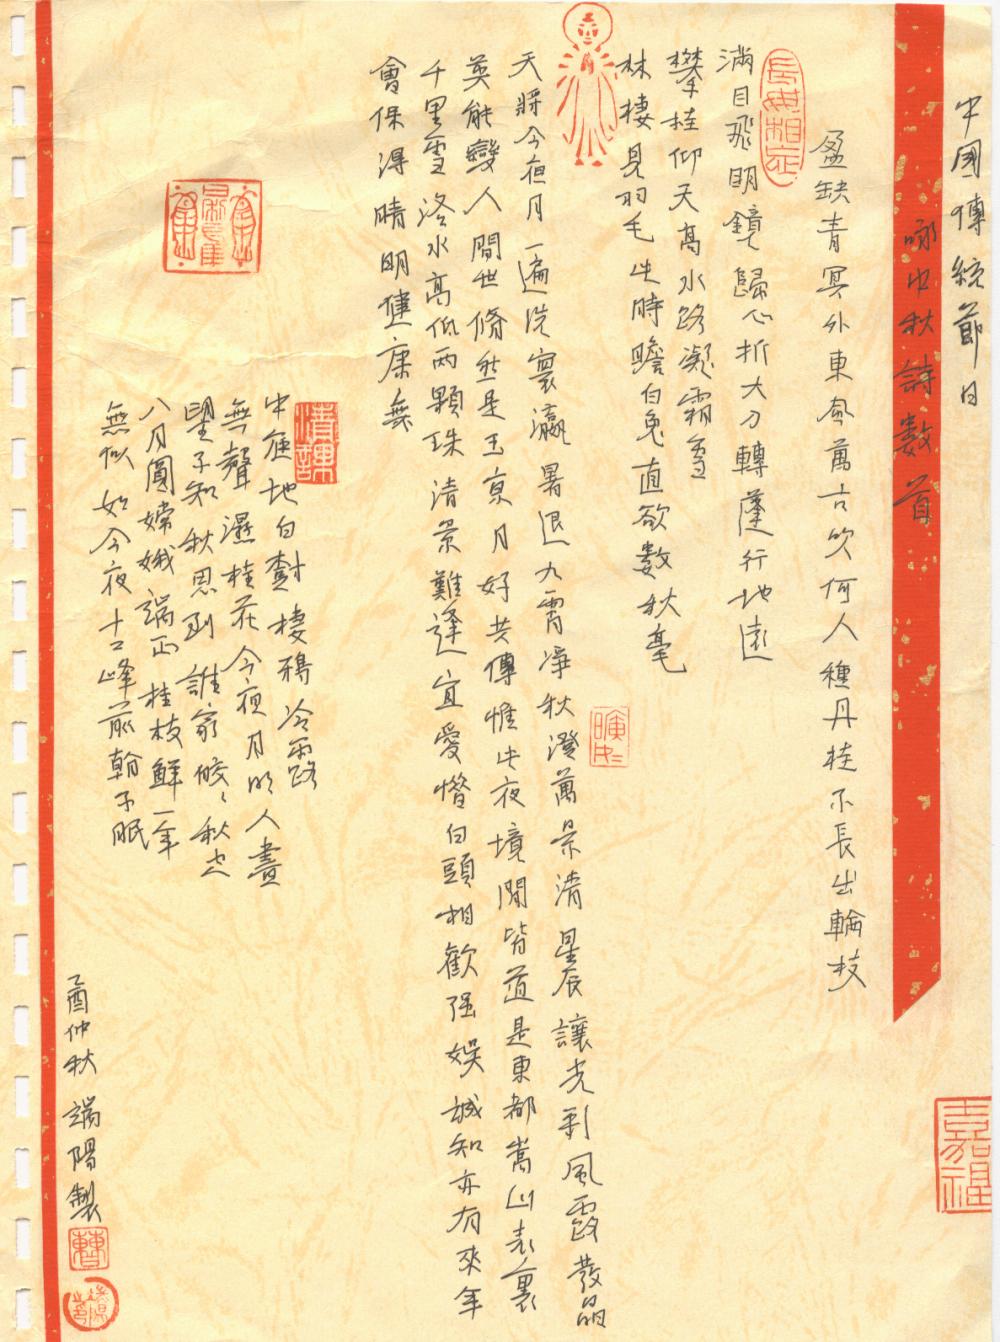 中國傳統節日
咏中秋詩数首
盈缺青冥外東風萬古吹何人種丹桂不長出輪枝
滿目飛明鏡歸心折大刀轉蓬行地遠
攀桂仰天高水路凝霜雪
林棲見羽毛此時瞻白兔直欲数秋毫
天將今夜月一遍洗寰瀛暑退九霄净秋澄萬景清星辰讓光彩風露發晶
英能變人間世翛然是玉京月好共傳惟此夜境閒皆道是東都嵩山表裏
千里雪洛水高低兩顆珠清景難逢宜愛惜白頭相歡强娱誠知亦有來年
會保得晴明健康無
中庭地白樹棲鴉冷露
無聲濕桂花今夜月明人盡
望不知秋思到誰家皎皎秋空
八月圓嫦娥端正桂枝鮮一年
無似如今夜十二峰前翰不眠
乙酉仲秋 端陽製
長毋相忘
清課
嘉福